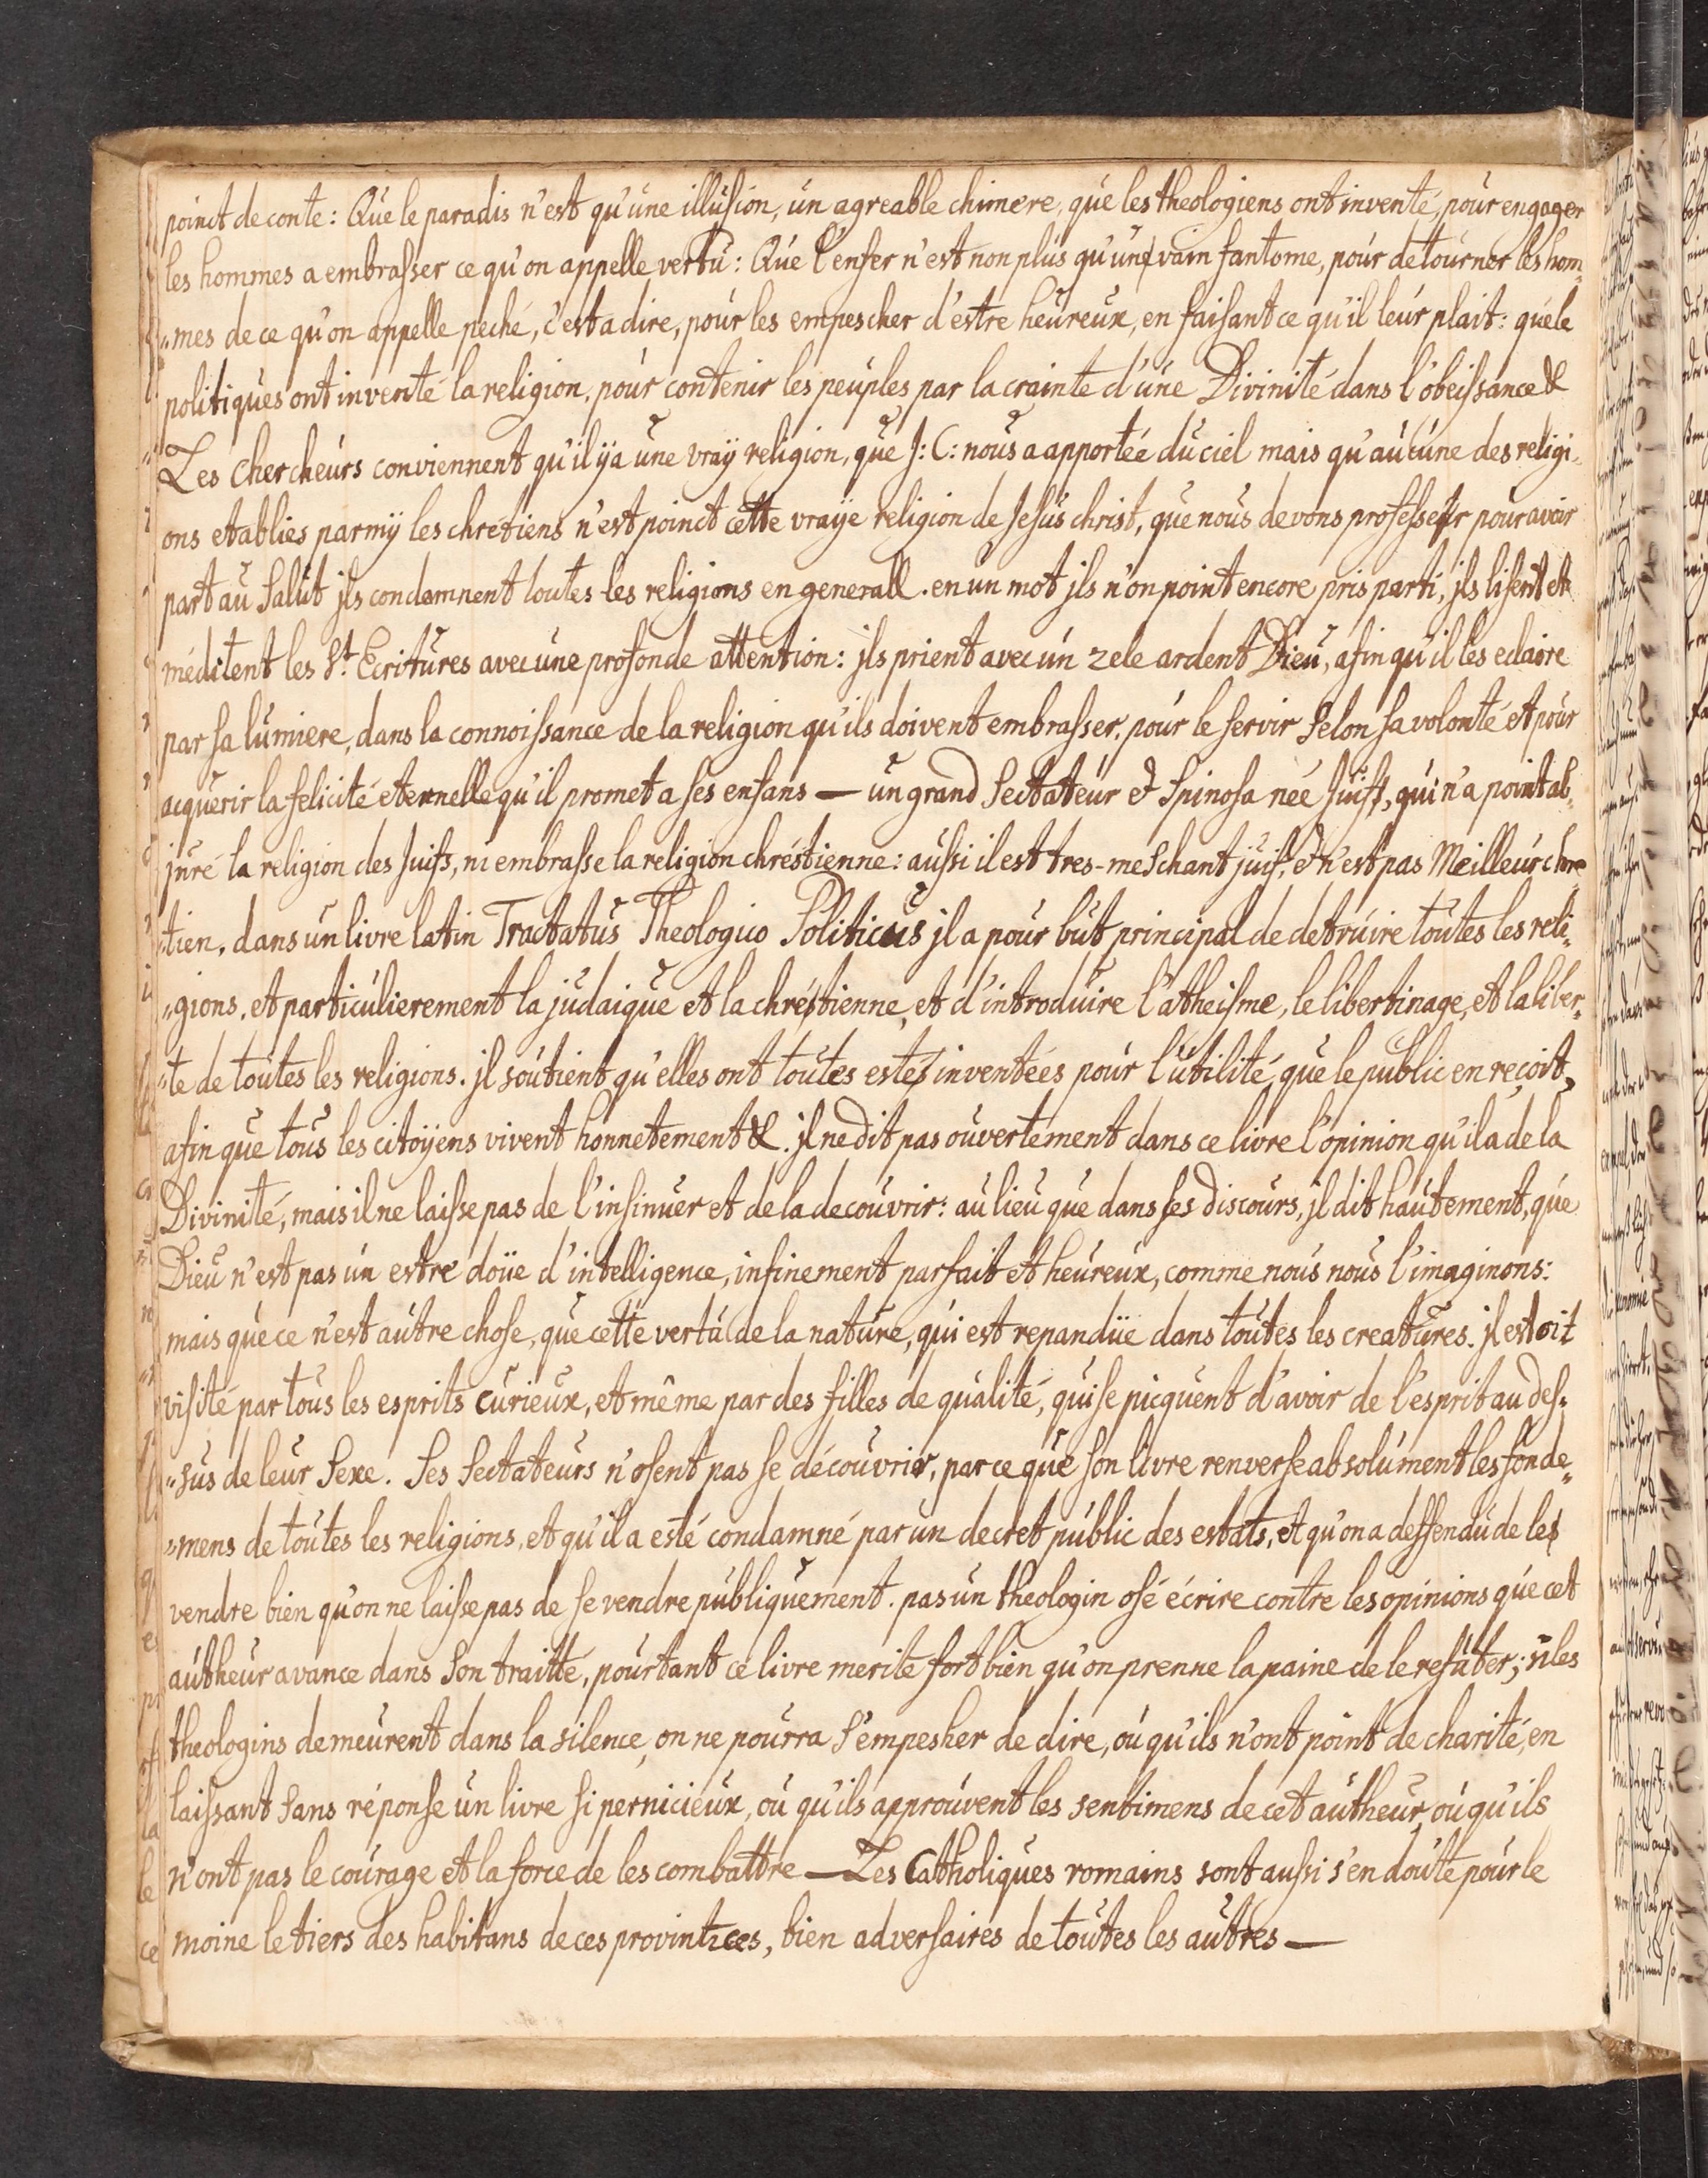 poinct de conte: Que le paradis n'est qu'une illusion, un agreable chimere, que les theologiens ont inventé, pour engager
les hommes a embrasser ce qu'on appelle vertu: Que l'enfer n'est non plus qu'une vain fantome, pour detourner les hom„
„mes de ce qu'on appelle peché, c'est a dire, pour les empescher d'estre heureux, en faisant ce qu'il leur plait: que le
politiques ont inventé la religion, pour contenir les peuples par la crainte d'une Divinité dans l'obeissance &
Les Chercheurs conviennent qu'il ÿa une vraÿ religion, que J: C: nous a apportée du ciel mais qu'aucune des religi„
ons etablies parmÿ les chretiens n'est poinct cette vraÿe religion de Jesus christ, que nous devons professer pour avoir
part au Salut jls condamnent toutes les religions en generall. en un mot jls n'on point encore pris parti, jls lisent et
méditent les St. Ecritures avec une profonde attention: jls prient avec un zele ardent Dieu, afin qu'il les eclaire
par sa lumiere, dans la connoissance de la religion qu'ils doivent embrasser, pour le servir Selon sa volonté et pour
acquerir la felicité eternelle qu'il promet a ses enfans — un grand Sectateur & Spinosa née Juif, qui n'a point ab„
juré la religion des Juifs, ni embrasse la religion chréstienne: aussi il est tres-meschant juif, & n'est pas Meilleur chre
„tien. dans un livre latin Tractatus Theologico Politicus jl a pour but principal de detruire toutes les reli„
„gions, et particulierement la judaique et la chréstienne, et d'introduire l'atheisme, le libertinage, et la liber„
„te de toutes les religions. jl soutient qu'elles ont toutes estes inventées pour l'utilité, que le public en reçoit,
afin que tous les citoÿens vivent honnetement &. jl ne dit pas ouvertement dans ce livre l'opinion qu'il a de la
Divinité, mais il ne laisse pas de l'insinuer et de la decouvrir: au lieu que dans ses discours, jl dit hautement, que
Dieu n'est pas un estre doüe d'intelligence, infinement parfait et heureux, comme nous nous l'imaginons:
mais que ce n'est autre chose, que cette vertu de la nature, qui est repandüe dans toutes les creatures. jl estoit
visité par tous les esprits curieux, et même par des filles de qualité, qui se picquent d'avoir de l'esprit au des„
„sus de leur Sexe. Ses Sectateurs n'osent pas se découvrir, parce que son livre renverse absolument les fonde„
„mens de toutes les religions, et qu'il a esté condamné par un decret public des estats, et qu'on a deffendu de les
vendre bien qu'on ne laisse pas de se vendre publiquement. pas un theologin osé écrire contre les opinions que cet
autheur avance dans Son traitté, pourtant ce livre merite fort bien qu'on prenne la paine de le refuter; si les
theologins demeurent dans la silence, on ne pourra s'empesher de dire, ou qu'ils n'ont point de charité, en
laissant Sans réponse un livre si pernicieux, ou qu'ils approuvent les sentimens de cet autheur, ou qu'ils
n'ont pas le courage et la force de les combattre — Les Catholiques romains sont aussi s'en doute pour le
moine le tiers des habitans de ces provintzces, bien adversaires de toutes les autres —